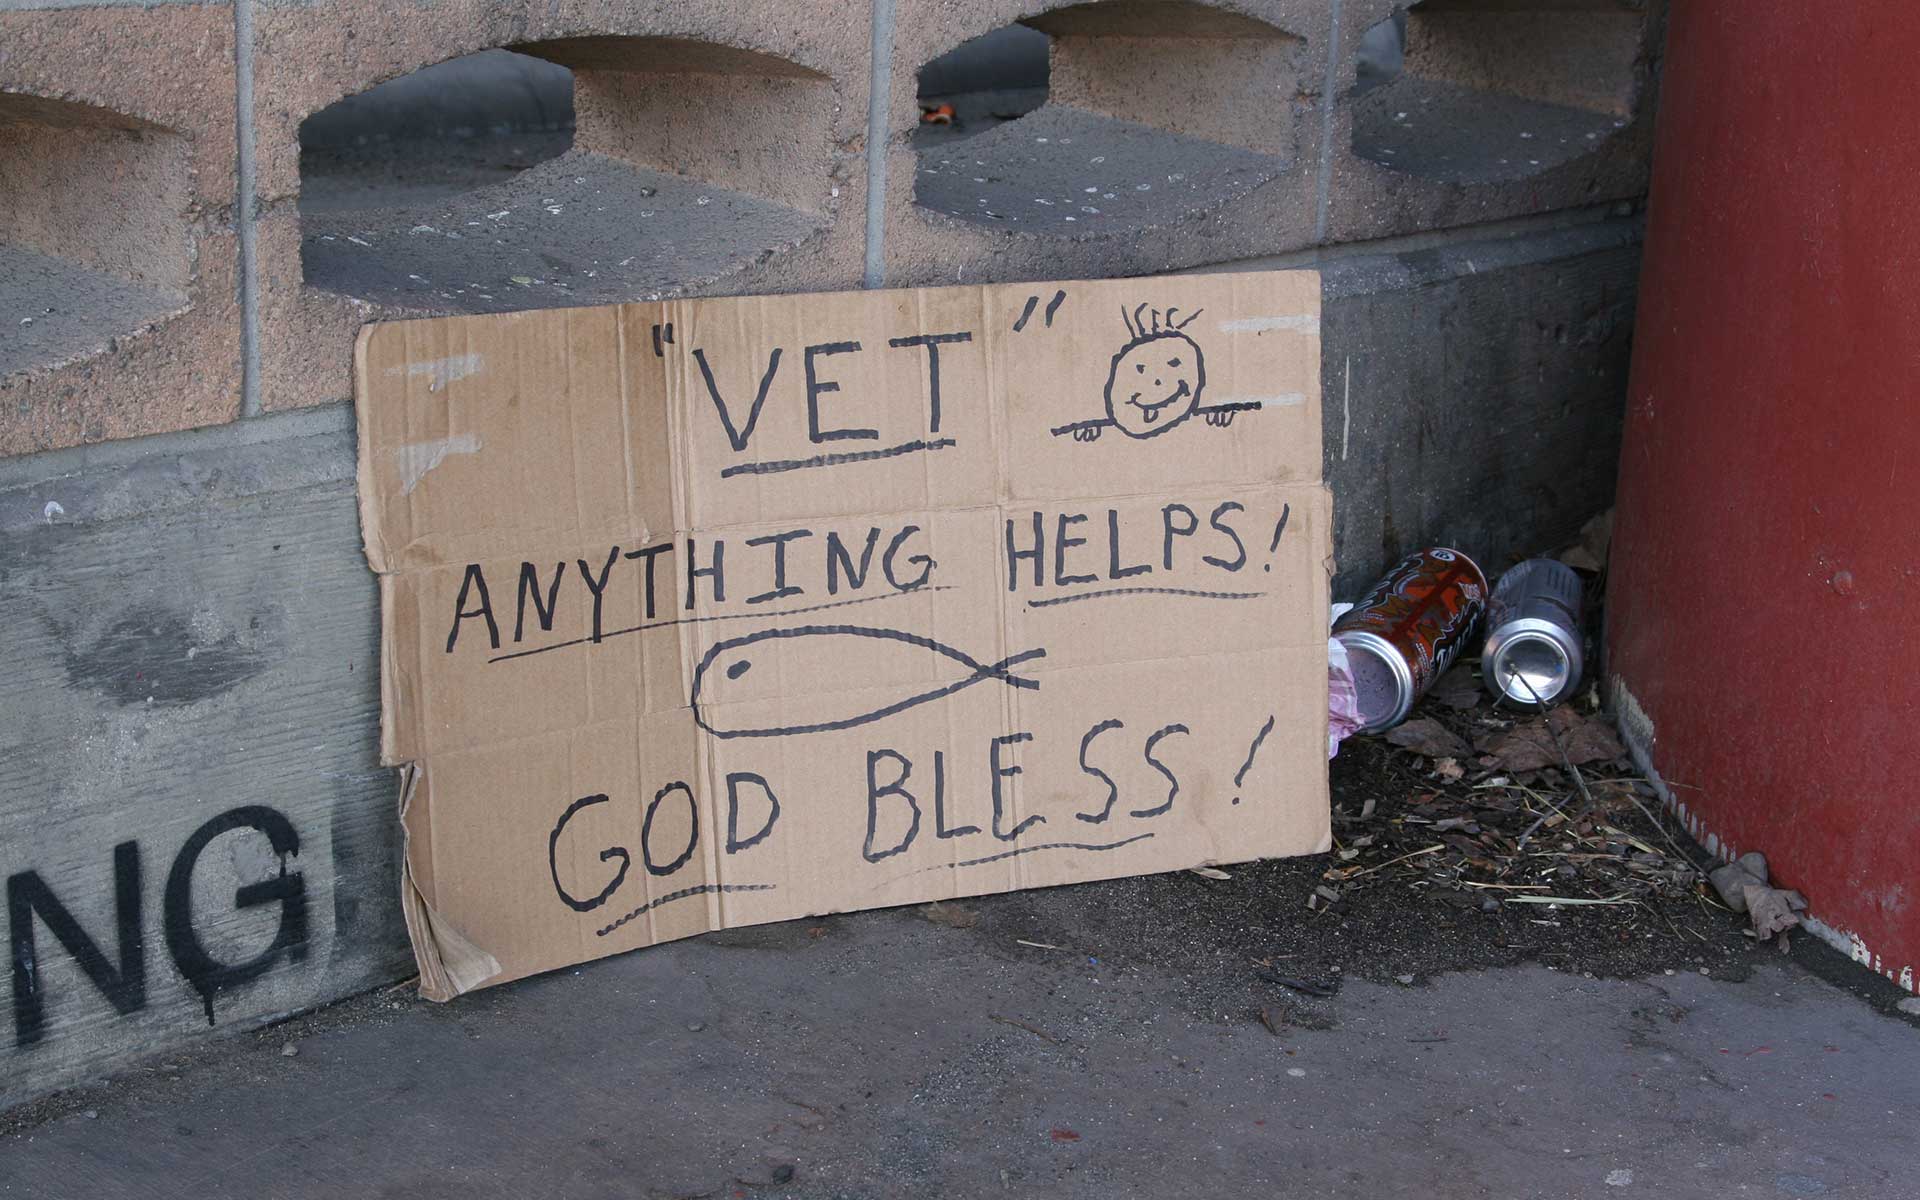 "VET"
ANYTHING HELPS!
GOD BLESS!
NG